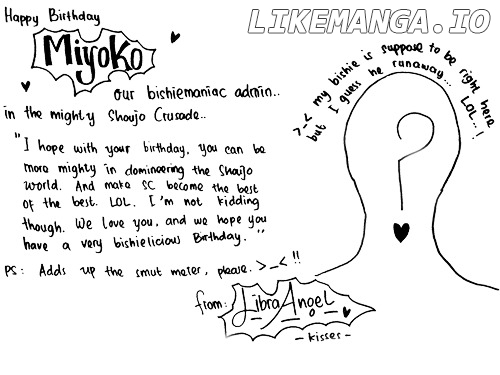 Happy Birthday
LIKEMANGA.IO
Miyoko
our bishiemaniac admin..
in the mighty Shoujo Crusade..
"I hope with your birthday, you can be
more mighty in domineering the Shoujo
world. And make SC become the best
of the best. LOL. I'm not kidding
though. We love you, and we hope you
have a very bishielicious Birthday."
PS: Adds up the smut meter, please. >_< !!
from: Libra Angel
- kisser -
>_< my bishie is suppose to be right here
but I guess he runaway... LOL..!
?